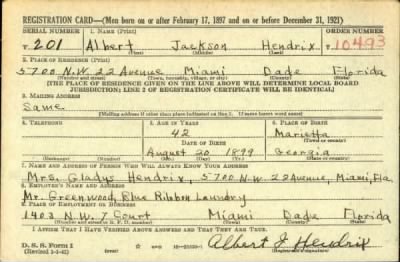 REGISTRATION CARD—(Men born on or after February 17, 1897 and on or before December 31, 1921)
SERIAL NUMBER 1. NAME (Print) ORDER NUMBER
T. 201 Albert Jackson Hendrix T 10493
(First) (Middle) (Last)
2. PLACE OF RESIDENCE (Print)
5700 N.W. 22 Avenue Miami Dade Florida
(Number and street) (Town, township, village, or city) (County) (State)
[THE PLACE OF RESIDENCE GIVEN ON THE LINE ABOVE WILL DETERMINE LOCAL BOARD
JURISDICTION; LINE 2 OF REGISTRATION CERTIFICATE WILL BE IDENTICAL]
3. MAILING ADDRESS
Same
[Mailing address if other than place indicated on line 2. If same insert word same]
4. TELEPHONE 5. AGE IN YEARS 6. PLACE OF BIRTH
42 Marietta
DATE OF BIRTH (Town or county)
August 20 1899 Georgia
(Exchange) (Number) (Mo.) (Day) (Yr.) (State or country)
7. NAME AND ADDRESS OF PERSON WHO WILL ALWAYS KNOW YOUR ADDRESS
Mrs. Gladys Hendrix, 5700 N.W. 22 Avenue, Miami, Fla
8. EMPLOYER'S NAME AND ADDRESS
Mr. Greenwood, Blue Ribbon Laundry
9. PLACE OF EMPLOYMENT OR BUSINESS
1403 N.W. 7 Court Miami Dade Florida
(Number and street or R. F. D. number) (Town) (County) (State)
I AFFIRM THAT I HAVE VERIFIED ABOVE ANSWERS AND THAT THEY ARE TRUE.
D. S. S. Form 1
Albert J Hendrix